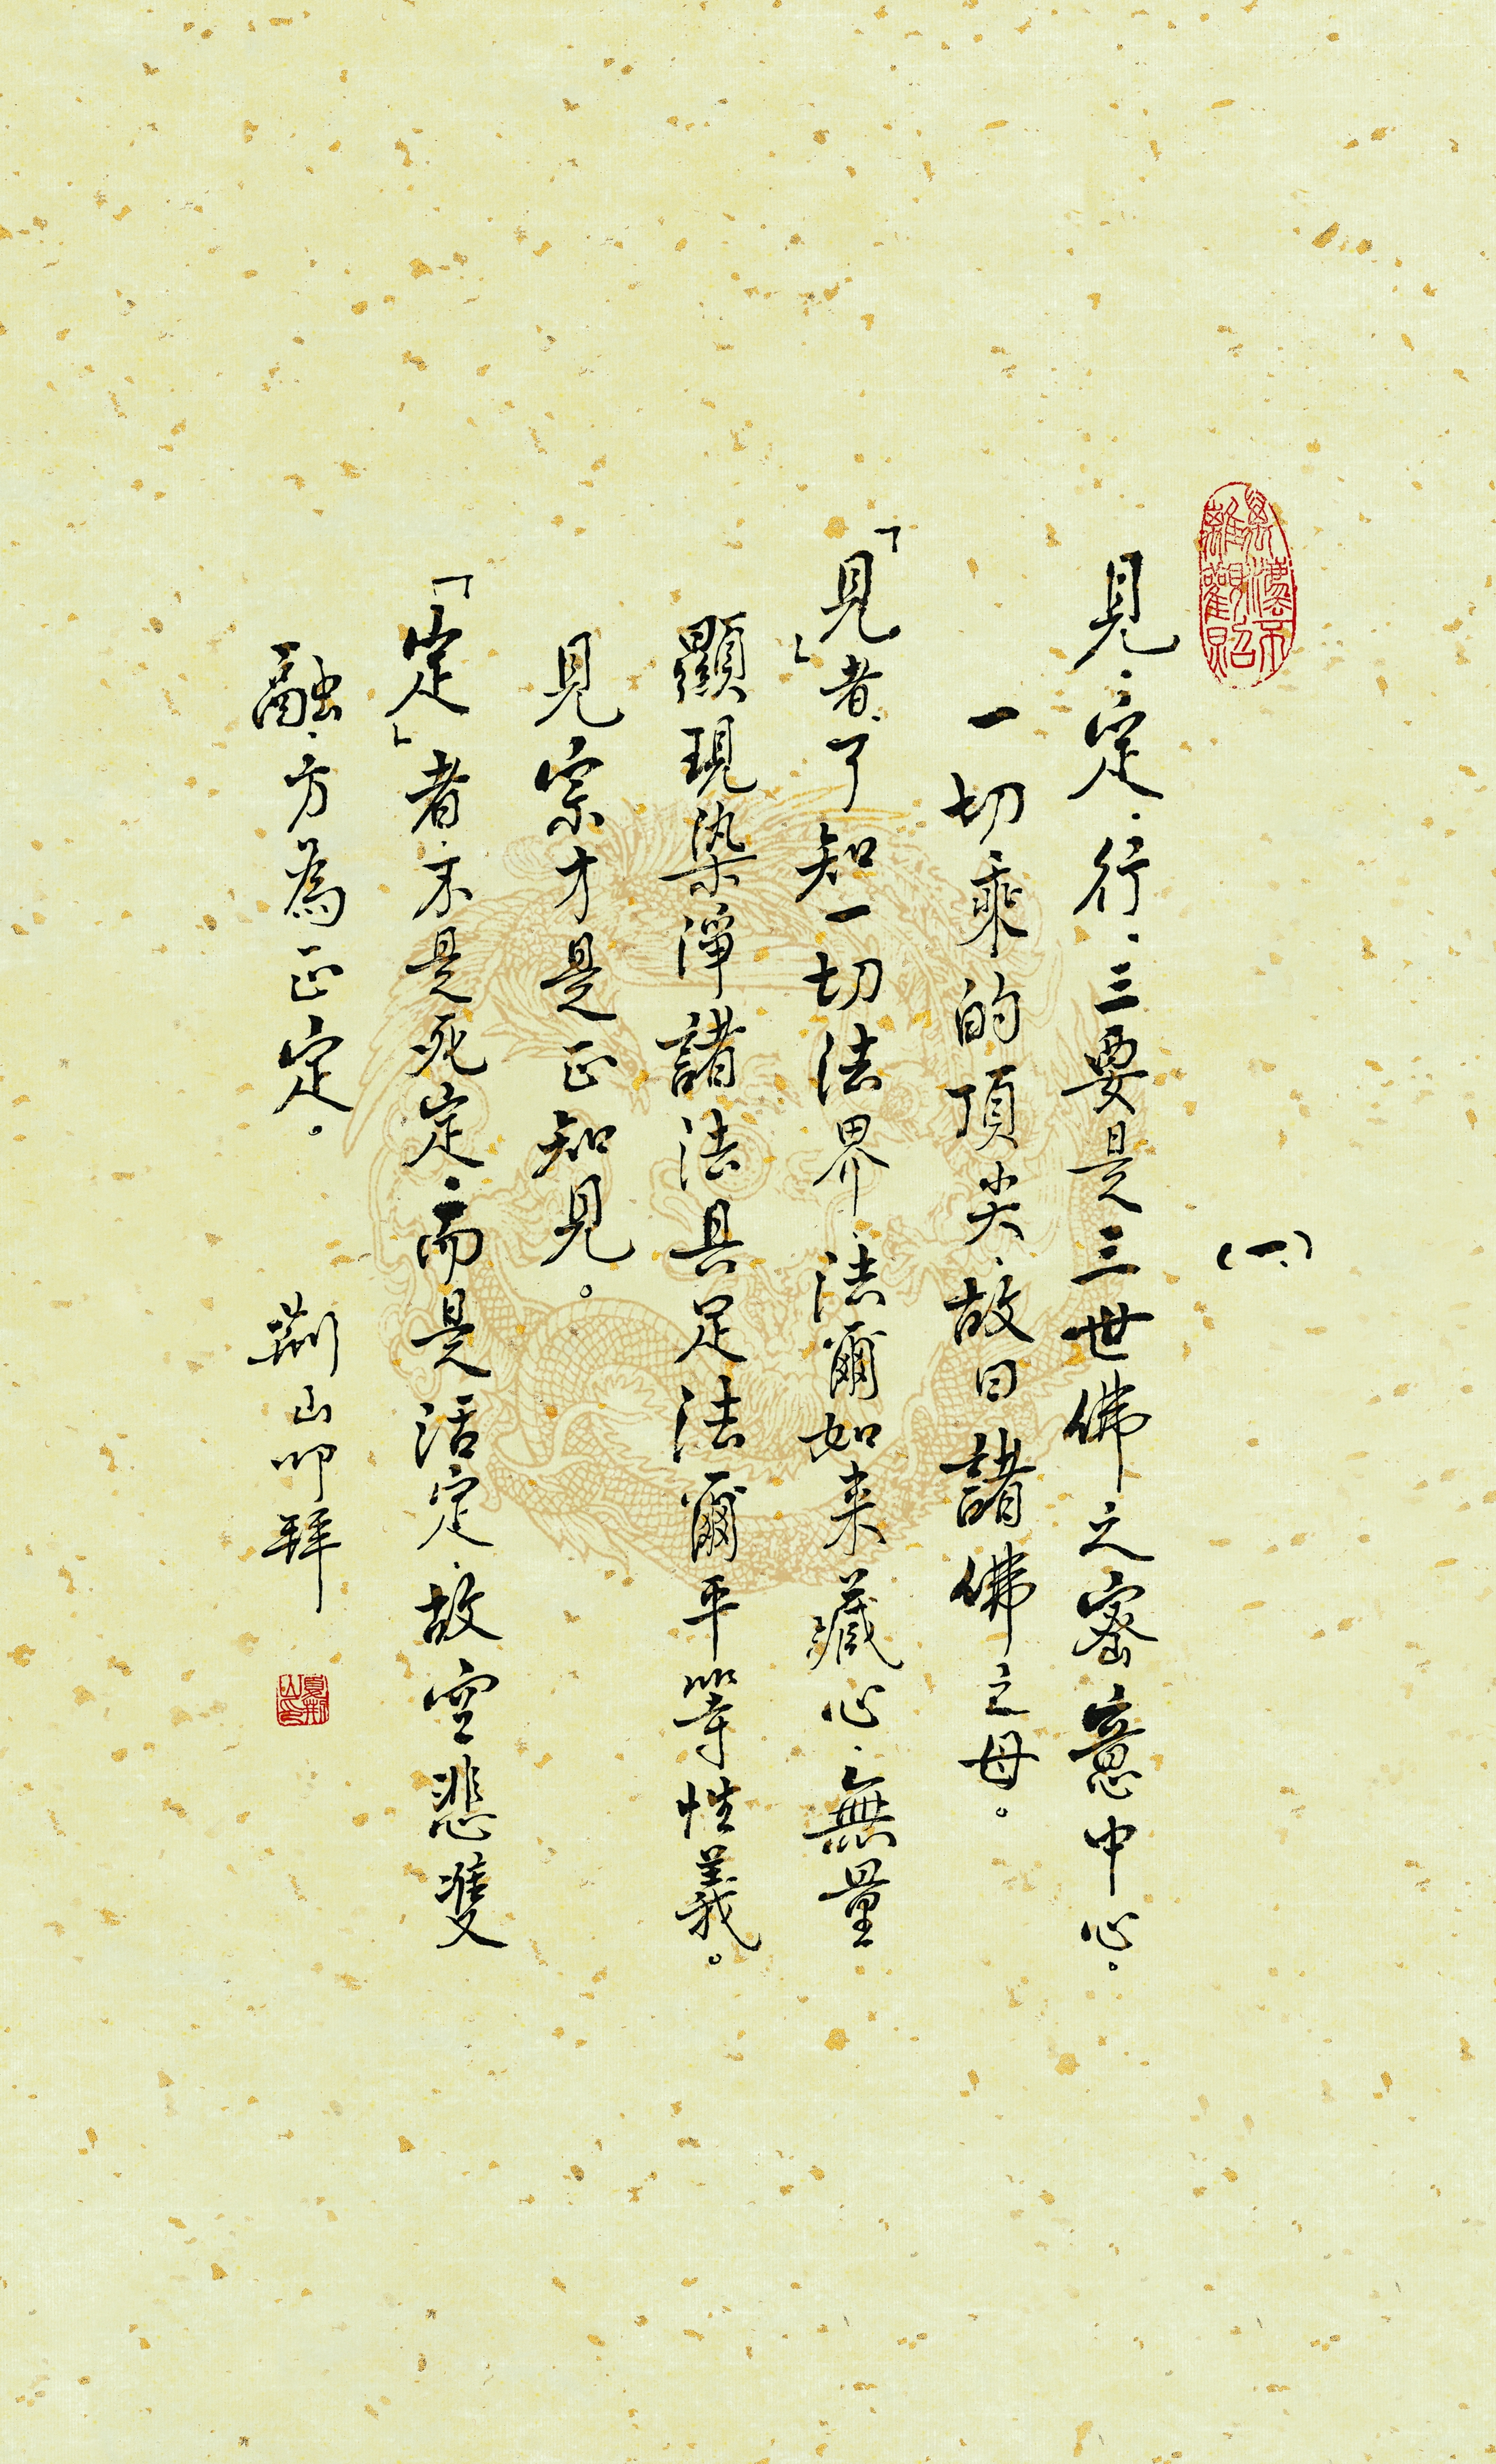 (一)
見、定、行、三要是三世佛之密意中心。
一切乘的頂尖、故曰諸佛之母。
「見」者、了知一切法界、法爾如来藏心、無量
顯現染淨諸法具足法爾平等性義。
見宗才是正知見。
「定」者、不是死定、而是活定、故空悲雙
融、方為正定。
荊山叩拜
夏荊山印